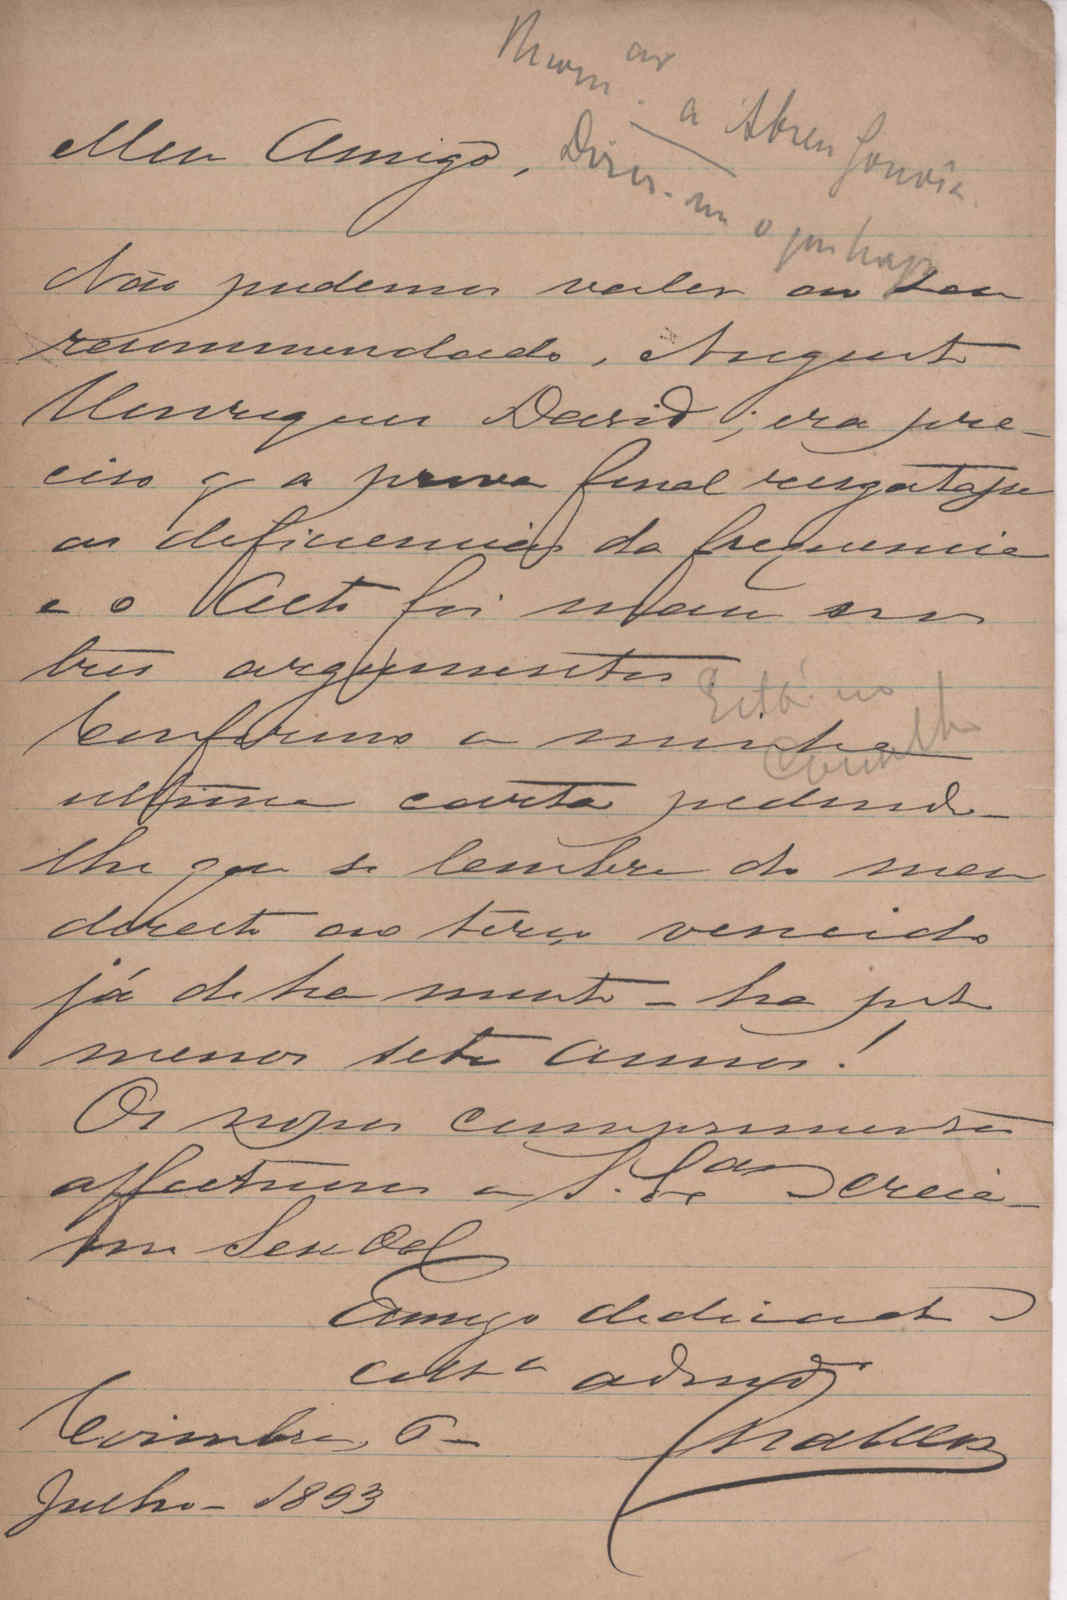 a Abreu Gouvêa
Meu Amigo,
Não pudemos valer ao seu
recommendado, Augusto
Henriques David; era pre-
ciso q a prova final resgatasse
as deficiencias da frequencia
e o Acto foi mau nos
tres argumentos
Está no
Conselho
Confirmo a minha
ultima carta pedindo-
lhe que se lembre do meu
direito ao terço vencido
já de ha muito - ha pelo
menos sete annos!
Os nossos cumprimentos
affectuosos a S. Ex.as e creia-
me sempre
Amigo dedicado
coll.a
Coimbra, 6 -
Julho - 1893